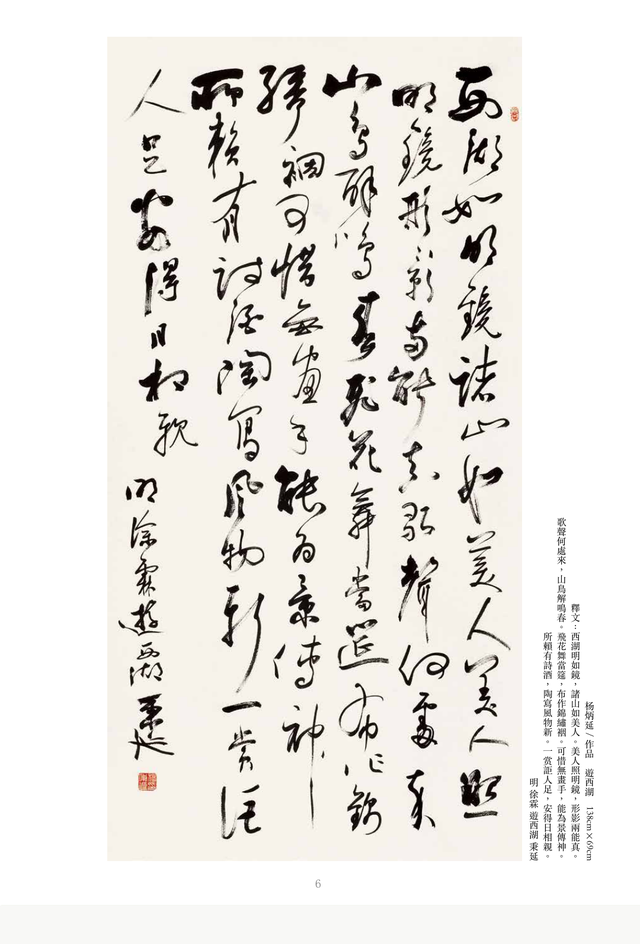 西湖如明鏡諸山如美人美人照
明鏡形影兩能真歌聲何處來
山鳥解鳴春飛花舞當筵布作錦
繡裀可惜無畫手能為景傳神
所賴有詩酒陶寫風物新一賞詎
人足安得日相親
明徐霖遊西湖 秉延
杨炳延/作品 遊西湖 138cm×69cm
釋文：西湖明如鏡，諸山如美人。美人照明鏡，形影兩能真。
歌聲何處來，山鳥解鳴春。飛花舞當筵，布作錦繡裀。可惜無畫手，能為景傳神。
所賴有詩酒，陶寫風物新。一賞詎人足，安得日相親。
明 徐霖 遊西湖 秉延
6